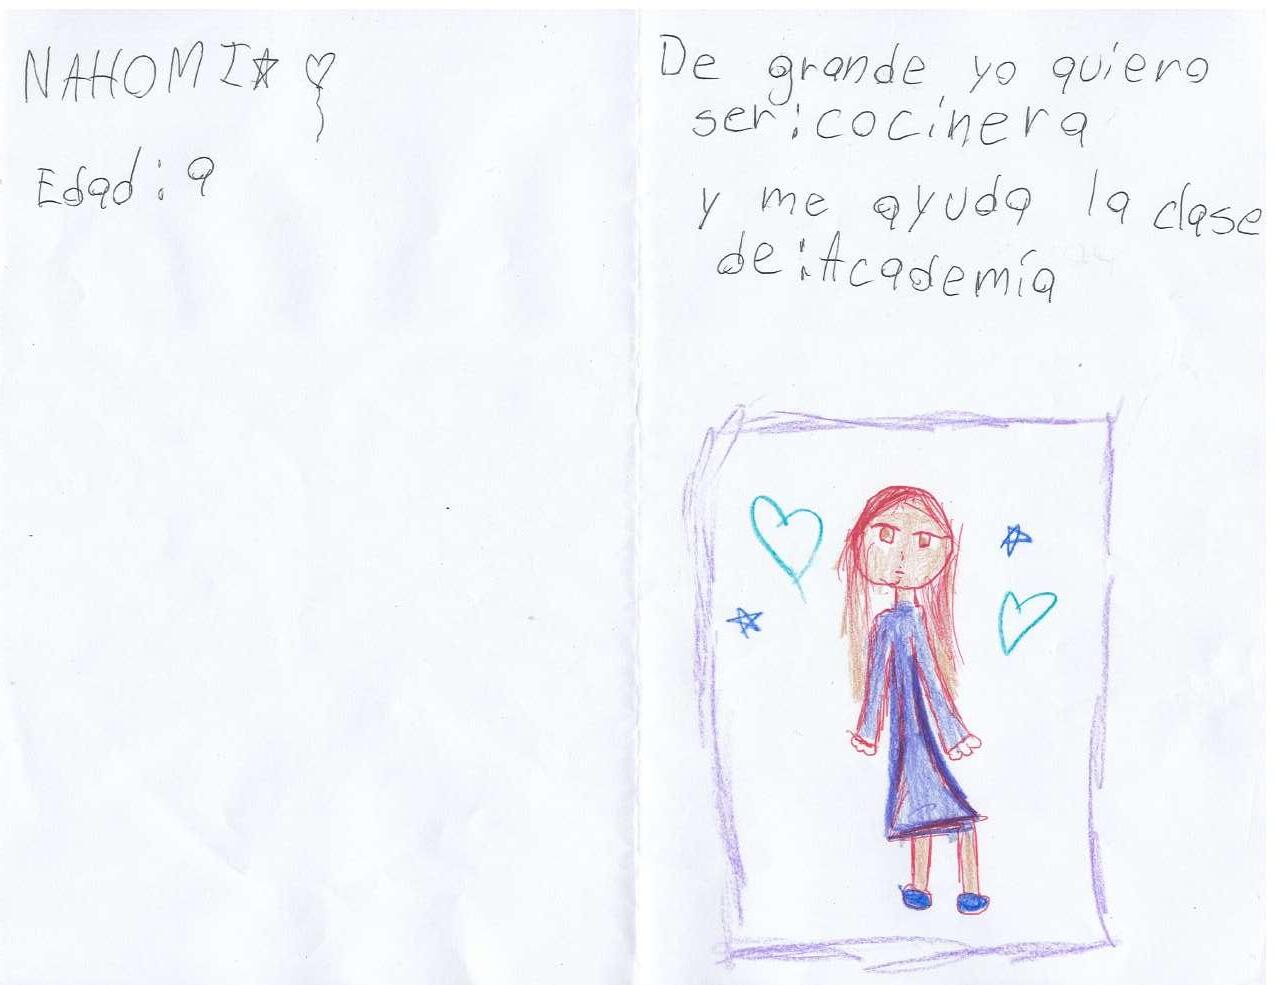 NAHOMI
Edad: 9
De grande yo quiero
ser: cocinera
y me ayuda la clase
de: Academía